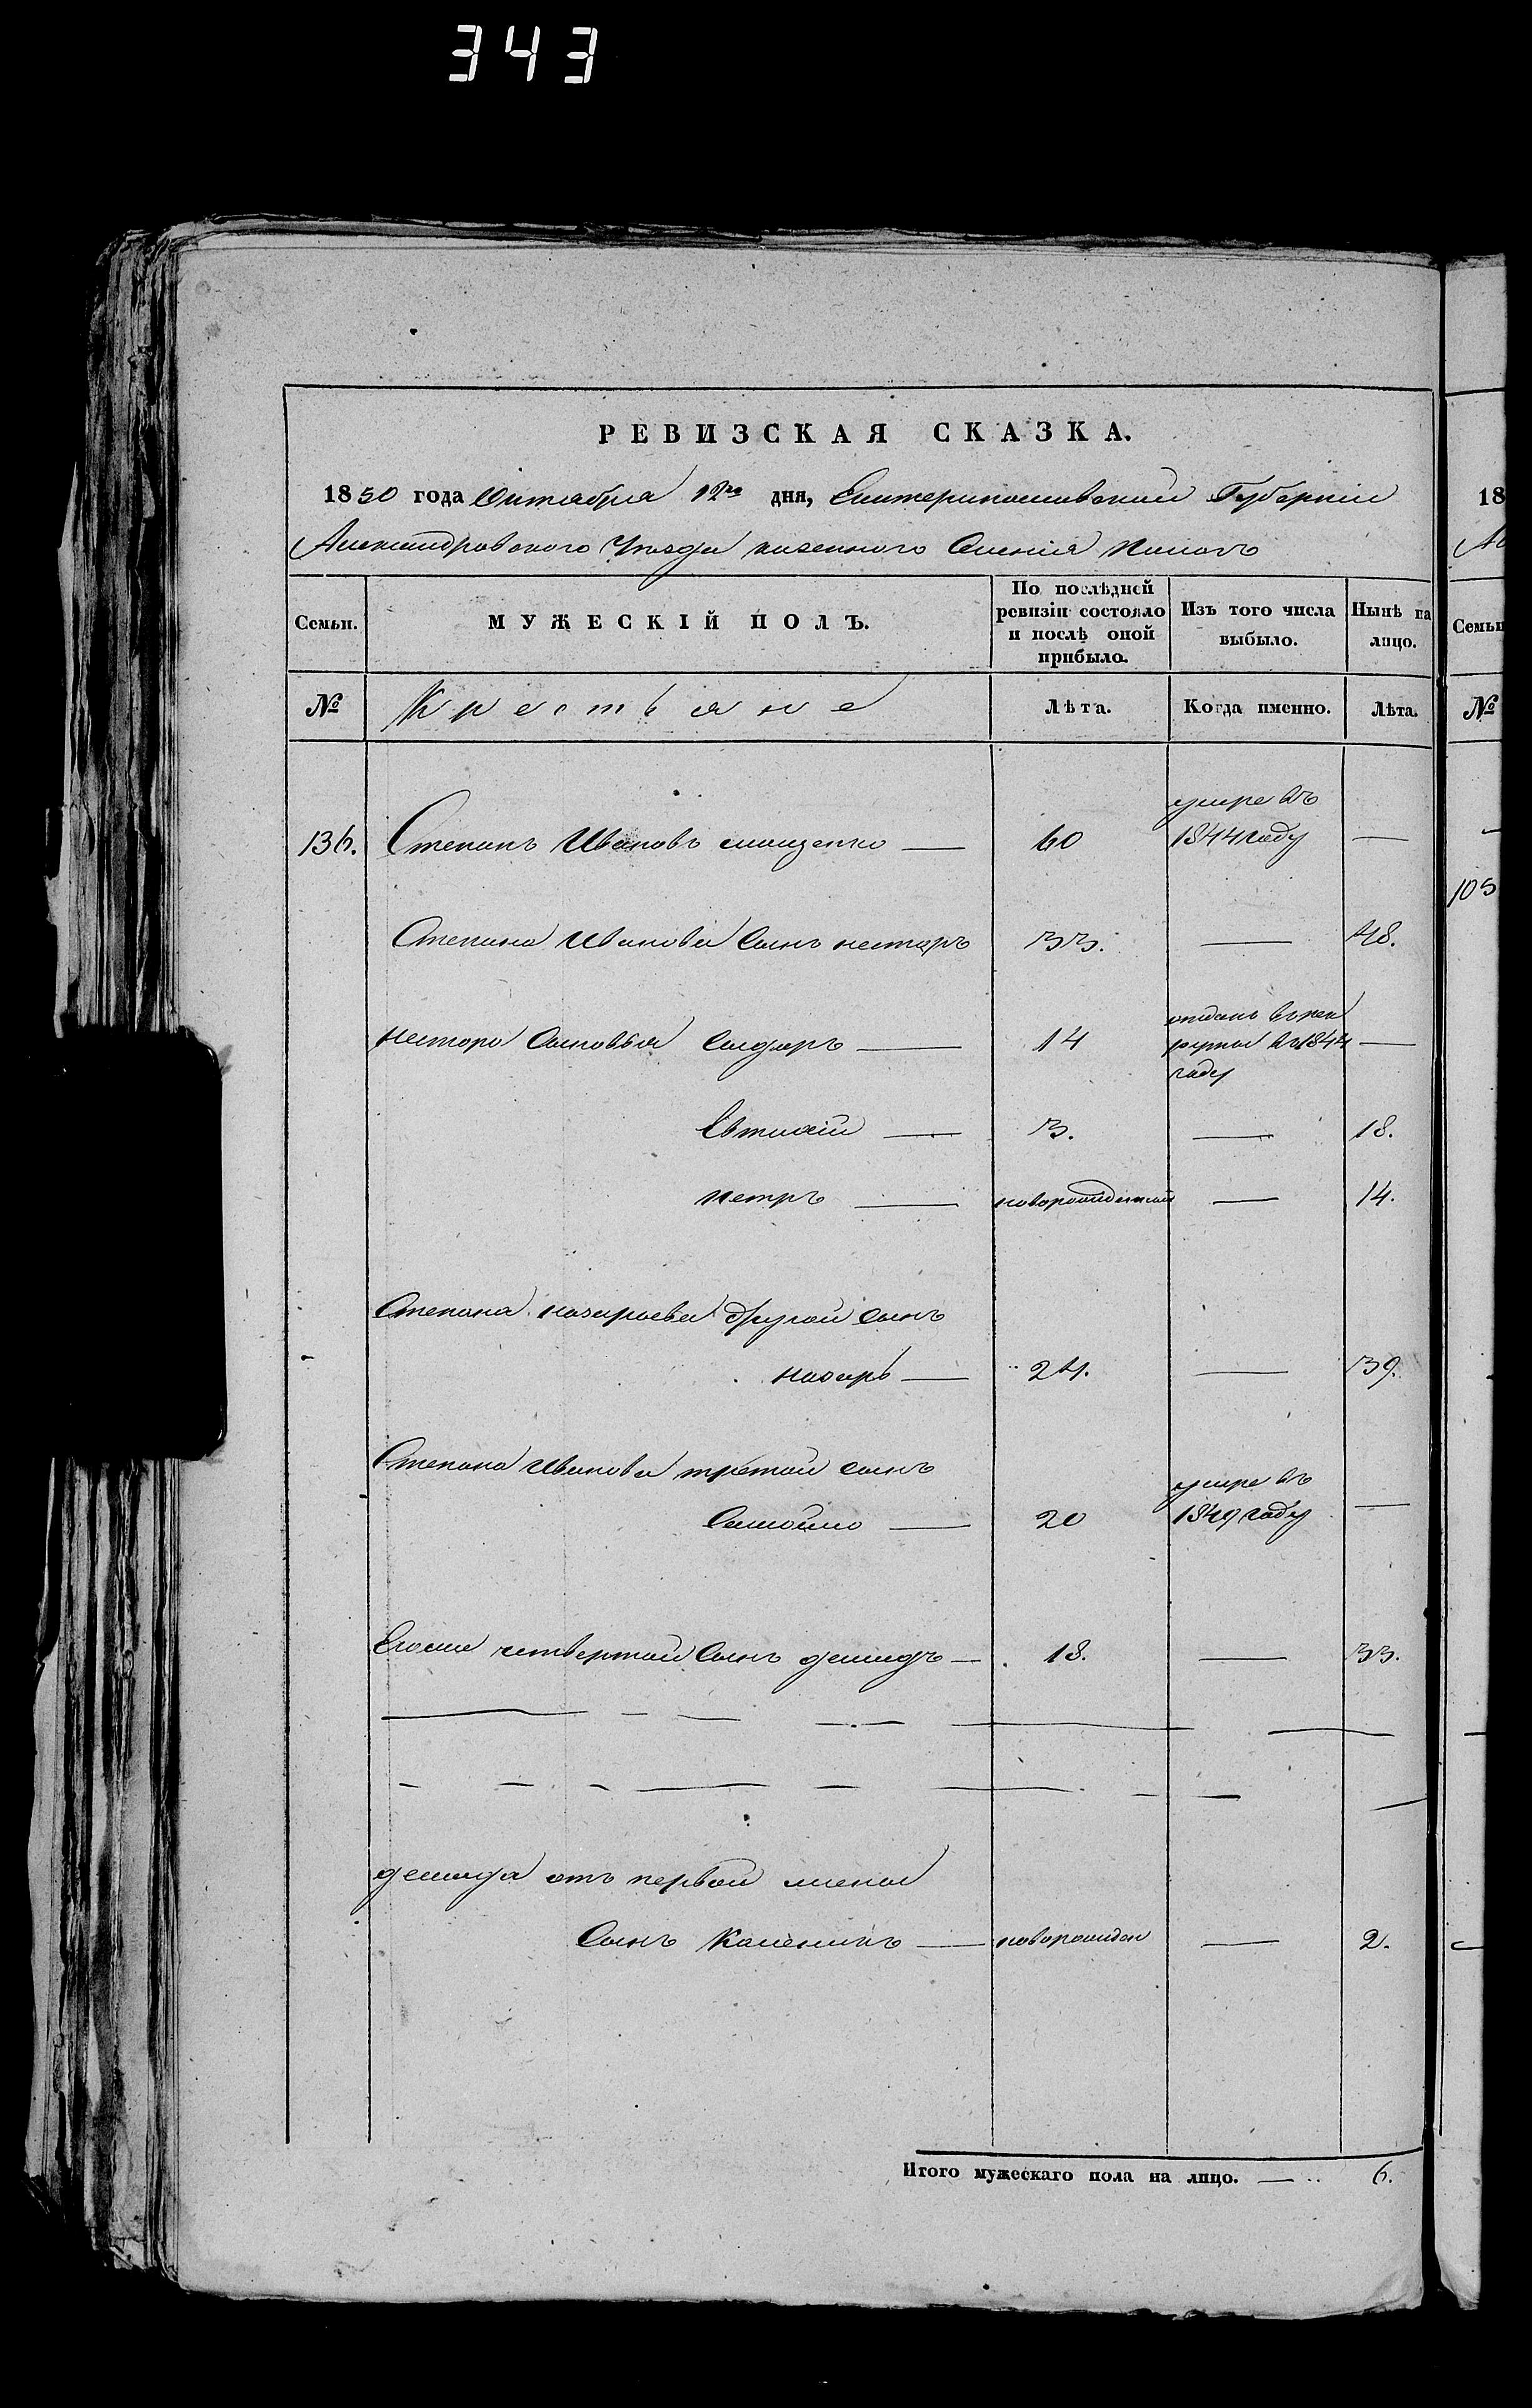 343
РЕВИЗСКАЯ СКАЗКА.
1850 года Октября 12го дня, Екатеринославской Губернии
Александровского Уезда казенного Селения
Семьи.
МУЖЕСКІЙ ПОЛЪ.
По послѣдней ревизіи состояло и послѣ оной прибыло.
Изъ того числа выбыло.
Нынѣ на лицо.
№
Крестьяне
Лѣта.
Когда именно.
Лѣта.
136. Степанъ Ивановъ — 60 умре въ 1844 году —
Степана Иванова Сынъ нестеръ 33. — 48.
нестера Сыновья Сидоръ — 14 отданъ въ рек
руты въ 1844 —
году
Евтихій — 3. — 18.
петръ — новорожденный — 14.
Степана назарьева другой сынъ
назаръ — 24. — 39.
Степана Иванова третой сынъ
Самойло — 20 умре въ 1849 году —
Егоже четвертой Сынъ демидъ — 18. — 33.
демида отъ первой жены
Сынъ — новорожден — 2.
Итого мужескаго пола на лицо. — 6.
18
Семьи
№
105